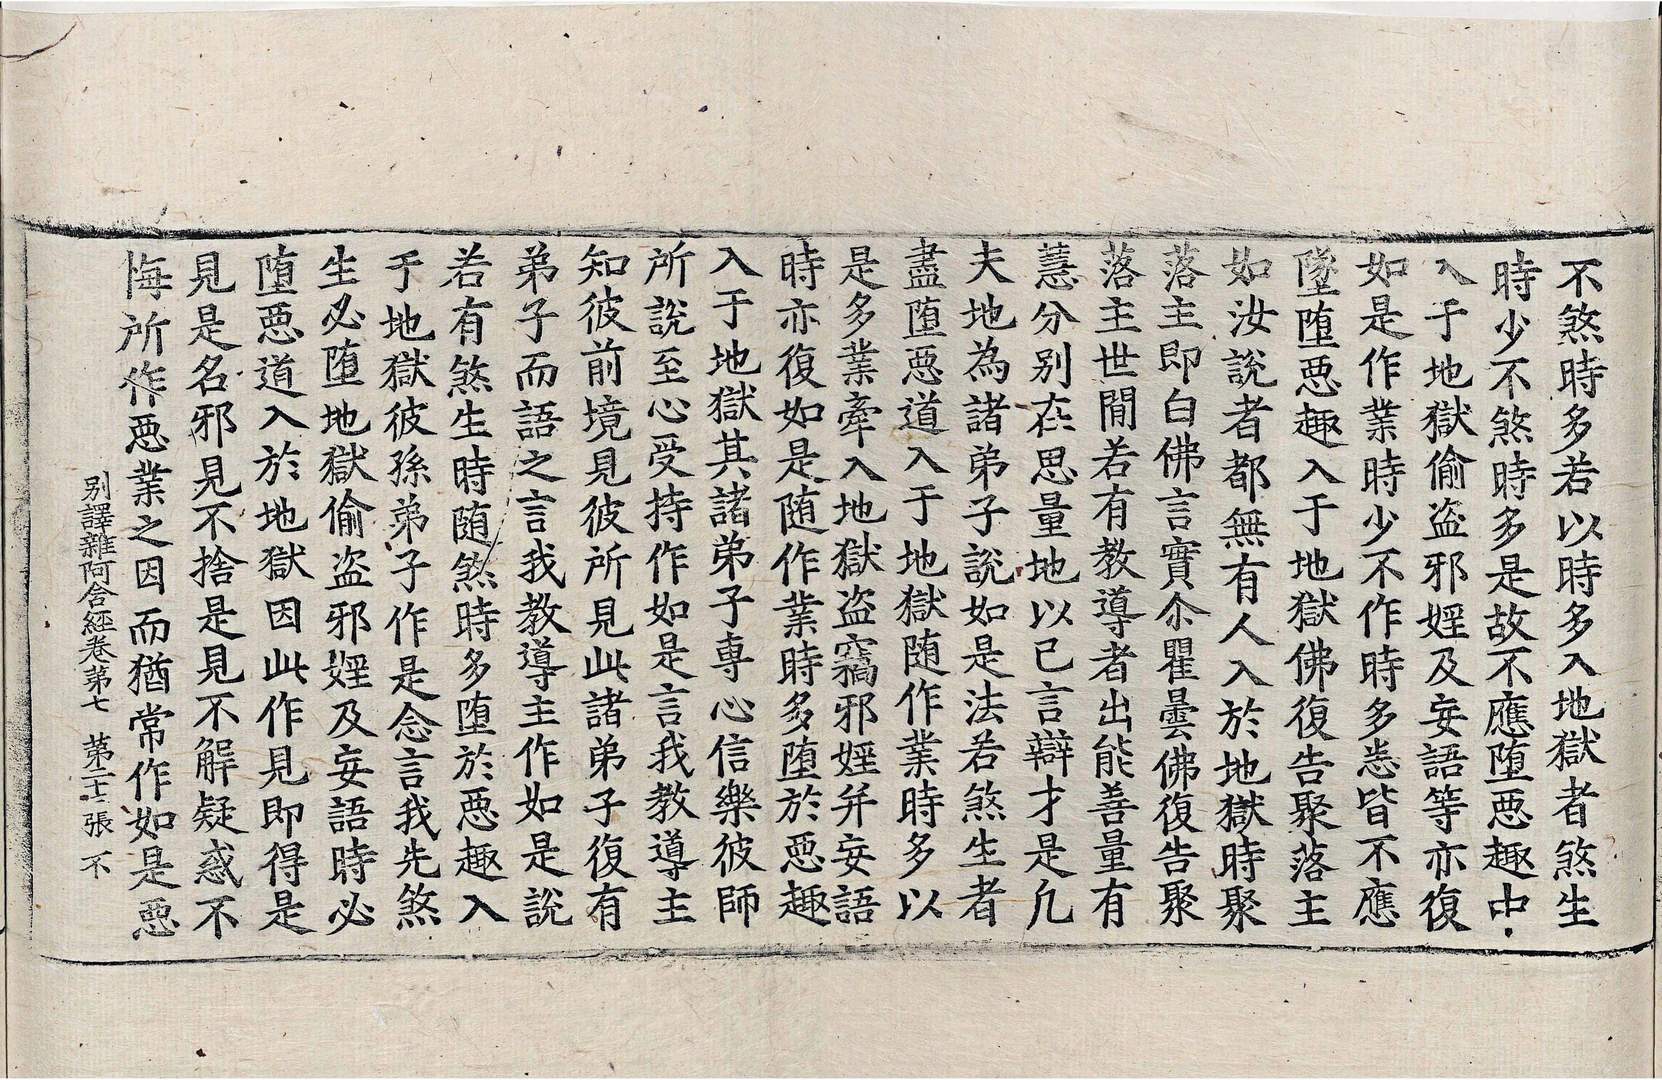 不煞時多若以時多入地獄者煞生
時少不煞時多是故不應堕堕惡趣中
入于地獄偷盗邪婬及妄語等亦復
如是作業時少不作時多悉皆不應
墜堕惡趣入于地獄佛復告聚落主
如汝說者都無有人入於地獄時聚
落主即白佛言實尒瞿曇佛復告聚
落主世閒若有教導者出能善量有
慧分别在思量地以已言辯才是凡
夫地為諸弟子說如是法若煞生者
盡堕惡道入于地獄随作業時多以
是多業牽入地獄盗竊邪婬并妄語
時亦復如是随作業時多堕於惡趣
入于地獄其諸弟子専心信樂彼師
所說至心受持作如是言我教導主
知彼前境見彼所見此諸弟子復有
弟子而語之言我教導主作如是說
若有煞生時随煞時多堕於惡趣入
于地獄彼孫弟子作是念言我先煞
生必堕地獄偷盗邪婬及妄語時必
堕惡道入於地獄因此作見即得是
見是名邪見不捨是見不解疑惑不
悔所作惡業之因而猶常作如是惡
别譯雜阿含經卷第七 苐二十張 不